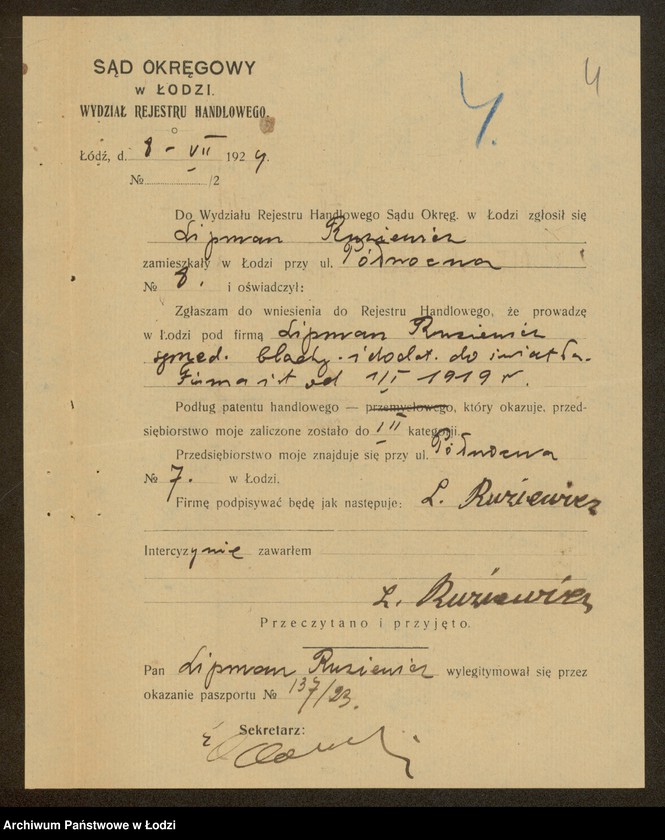 SĄD OKRĘGOWY
w ŁODZI.
WYDZIAŁ REJESTRU HANDLOWEGO.
4.
4
Łódź, d. 8 - VII 1924.
№ /2
Do Wydziału Rejestru Handlowego Sądu Okręg. w Łodzi zgłosił się
Lipman Ruziewicz
zamieszkały w Łodzi przy ul. Północna
№ 8. i oświadczył:
Zgłaszam do wniesienia do Rejestru Handlowego, że prowadzę
w Łodzi pod firmą Lipman Ruziewicz
sprzed. blachy i dodat. do światła.
Firma ist od 1/I 1919 r.
Podług patentu handlowego — przemysłowego, który okazuje, przed-
siębiorstwo moje zaliczone zostało do III kategorji.
Przedsiębiorstwo moje znajduje się przy ul. Północna
№ 7. w Łodzi.
Firmę podpisywać będę jak następuje: L. Ruziewicz
Intercyzy nie zawarłem
L. Ruziewicz
Przeczytano i przyjęto.
Pan Lipman Ruziewicz wylegitymował się przez
okazanie paszportu № 137/23.
Sekretarz:
Archiwum Państwowe w Łodzi